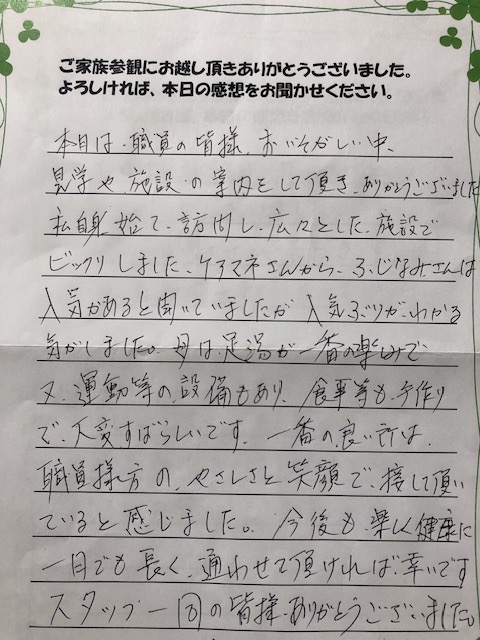 ご家族参観にお越し頂きありがとうございました。
よろしければ、本日の感想をお聞かせください。
本日は、職員の皆様、おいそがしい中、
見学や施設の案内をして頂き、ありがとうございました
私自身始て、訪問し、広々とした、施設で
ビックリしました、ケアマネさんから、ふじなみさんは
人気があると聞いていましたが人気ぶりが、わかる
気がしました。母は、足湯が一番の楽しみで
又、運動等の設備もあり、食事等も、手作り
で、大変すばらしいです。一番の良い所は、
職員様方の、やさしさと笑顔で、接して頂い
ていると感じました。今後も楽しく健康に
一日でも長く、通わせて頂ければ幸いです
スタッフ一同の皆様、ありがとうございました。